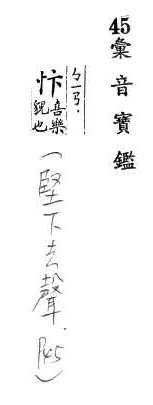 45彙音寶鑑
ㄅㄧㄢˋ
忭 喜樂貌也
(堅下去聲.P45)